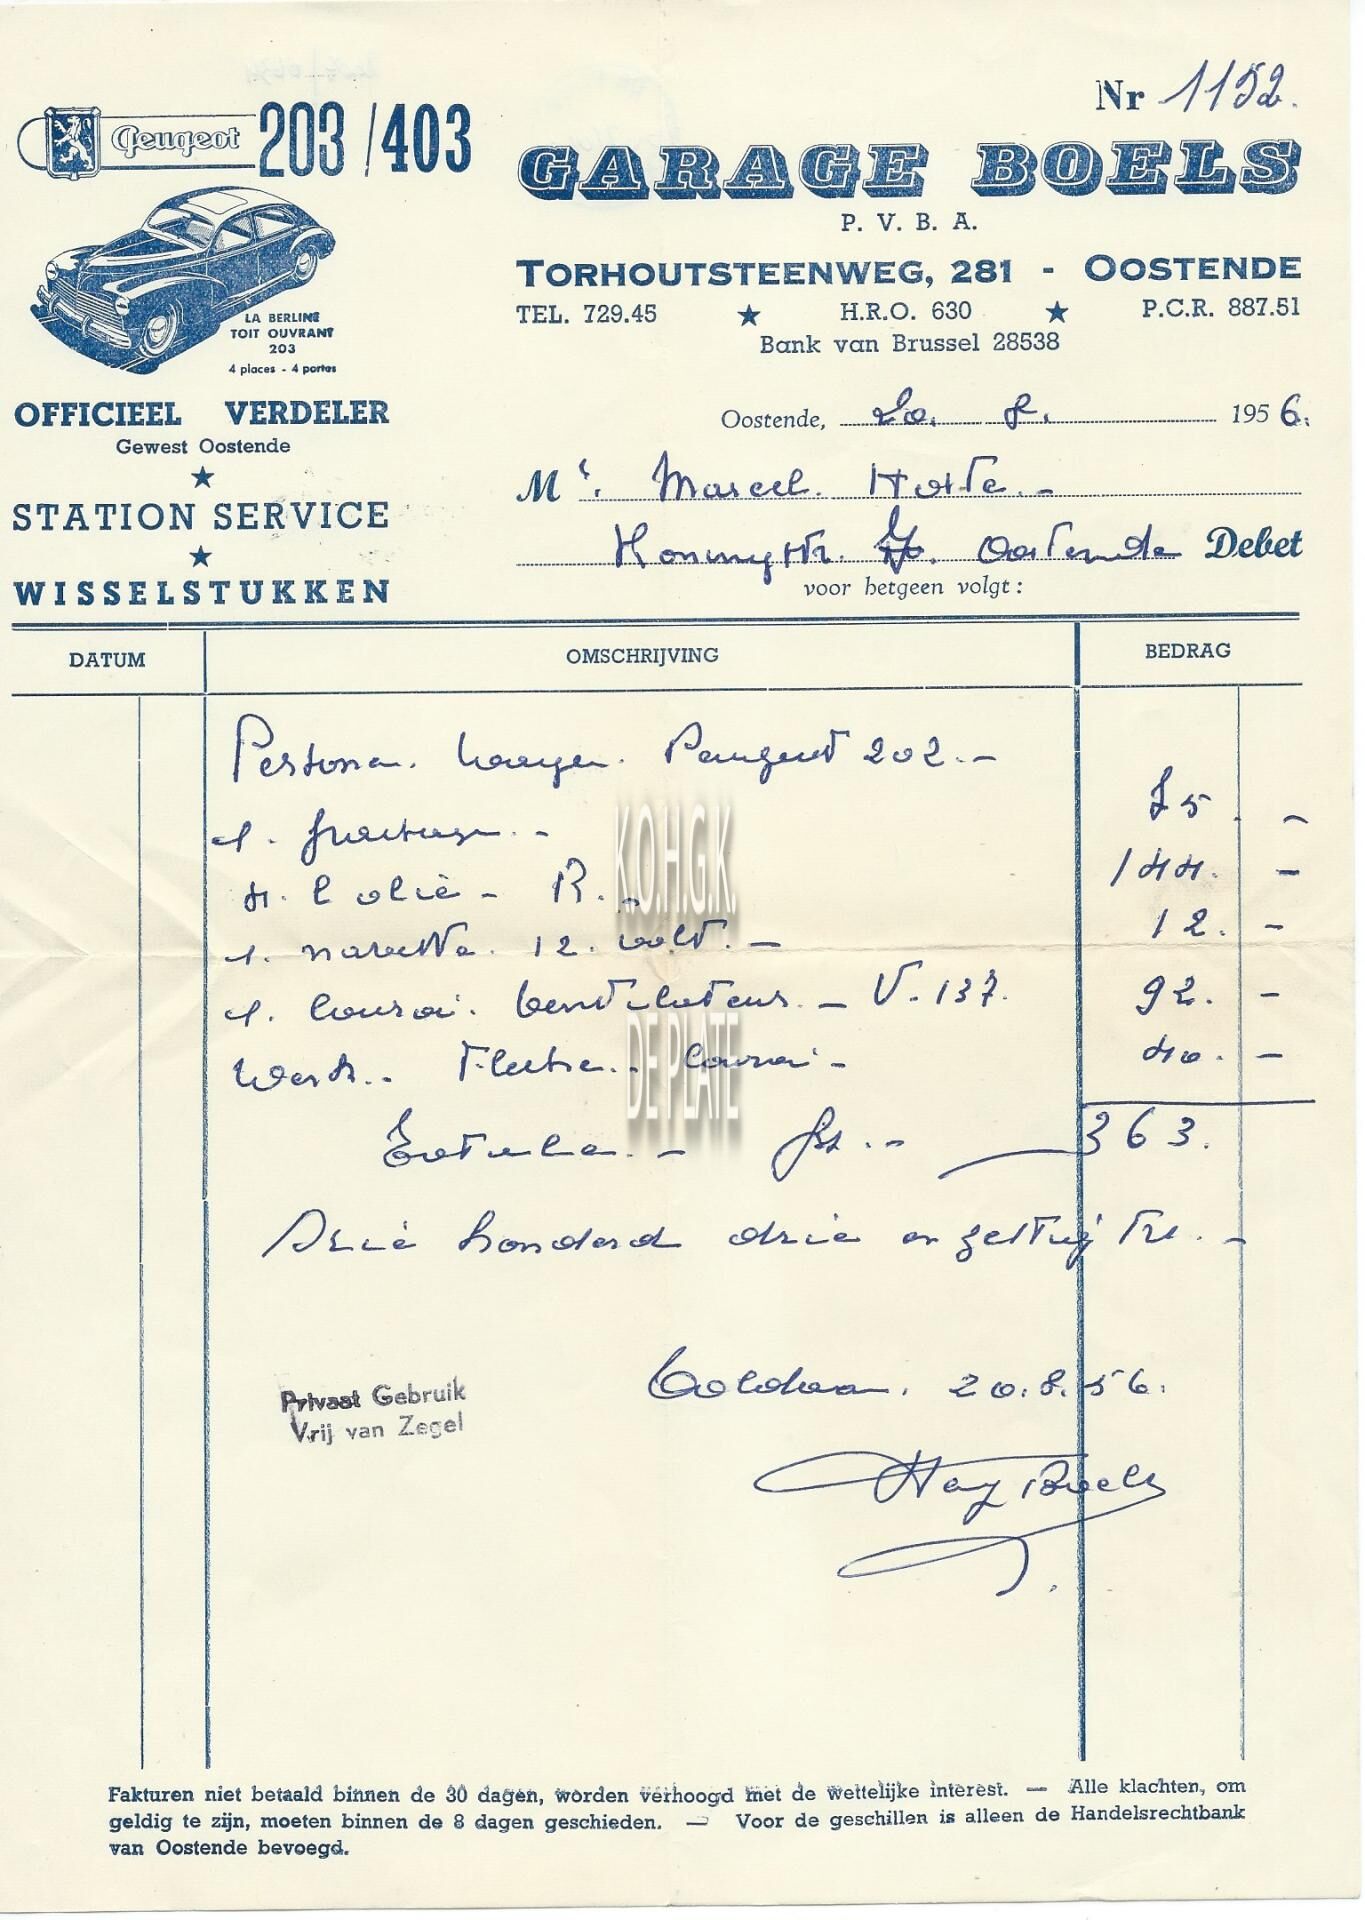 Nr 1152.
Peugeot 203/403
GARAGE BOELS
P. V. B. A.
TORHOUTSTEENWEG, 281 - OOSTENDE
TEL. 729.45 ★ H.R.O. 630 ★ P.C.R. 887.51
Bank van Brussel 28538
LA BERLINE
TOIT OUVRANT
203
4 places - 4 portes
OFFICIEEL VERDELER
Gewest Oostende
★
STATION SERVICE
★
WISSELSTUKKEN
Oostende, 20. 8. 1956.
Mr. Marcel
Oostende Debet
voor hetgeen volgt :
DATUM OMSCHRIJVING BEDRAG
Persone. wagen. Peugeot 202.-
1. graissage.- 75. -
4. l olie - R.- 144. -
1. navette. 12. volt.- 12. -
1. courroi. ventilateur.- V.137. 92. -
Werk.. courroi - 40. -
Totale.- frs.- 363.
Drie honderd drie en zestig fr.-
Voldaan. 20.8.56.
Boels
Privaat Gebruik
Vrij van Zegel
K.O.H.G.K.
DE PLATE
Fakturen niet betaald binnen de 30 dagen, worden verhoogd met de wettelijke interest. — Alle klachten, om
geldig te zijn, moeten binnen de 8 dagen geschieden. — Voor de geschillen is alleen de Handelsrechtbank
van Oostende bevoegd.